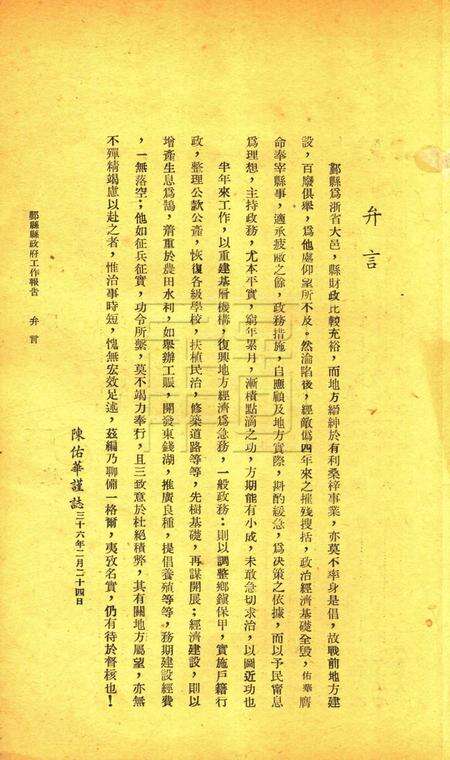 弁言
鄞縣爲浙省大邑，縣財政比較充裕，而地方縉紳於有利桑梓事業，亦莫不率身是倡，故戰前地方建
設，百廢俱舉，爲他處仰望所不及。然淪陷後，經敵僞四年來之摧殘搜括，政治經濟基礎全毀，佑華膺
命奉宰縣事，適承疲敝之餘，政務措施，自應顧及地方實際，斟酌緩急，爲決策之依據，而以予民甯息
爲理想，主持政務，尤本平實，窮年累月，漸積點滴之功，方期能有小成，未敢急切求治，以圖近功也
半年來工作，以重建基層機構，復興地方經濟爲急務，一般政務：則以調整鄉鎭保甲，實施戶籍行
政，整理公款公產，恢復各級學校，扶植民治，修築道路等等，先樹基礎，再謀開展；經濟建設，則以
增產生息爲鵠，着重於農田水利，如舉辦工賑，開發東錢湖，推廣良種，提倡養殖等等，務期建設經費
，一無落空；他如征兵征實，功令所繫，莫不竭力奉行，且三致意於杜絕積弊，其有關地方屬望，亦無
不殫精竭慮以赴之者，惟治事時短，愧無宏效足述，茲編乃聊備一格爾，夷攷名實，仍有待於督核也！
陳佑華謹誌三十六年二月二十四日
鄞縣縣政府工作報告 弁言